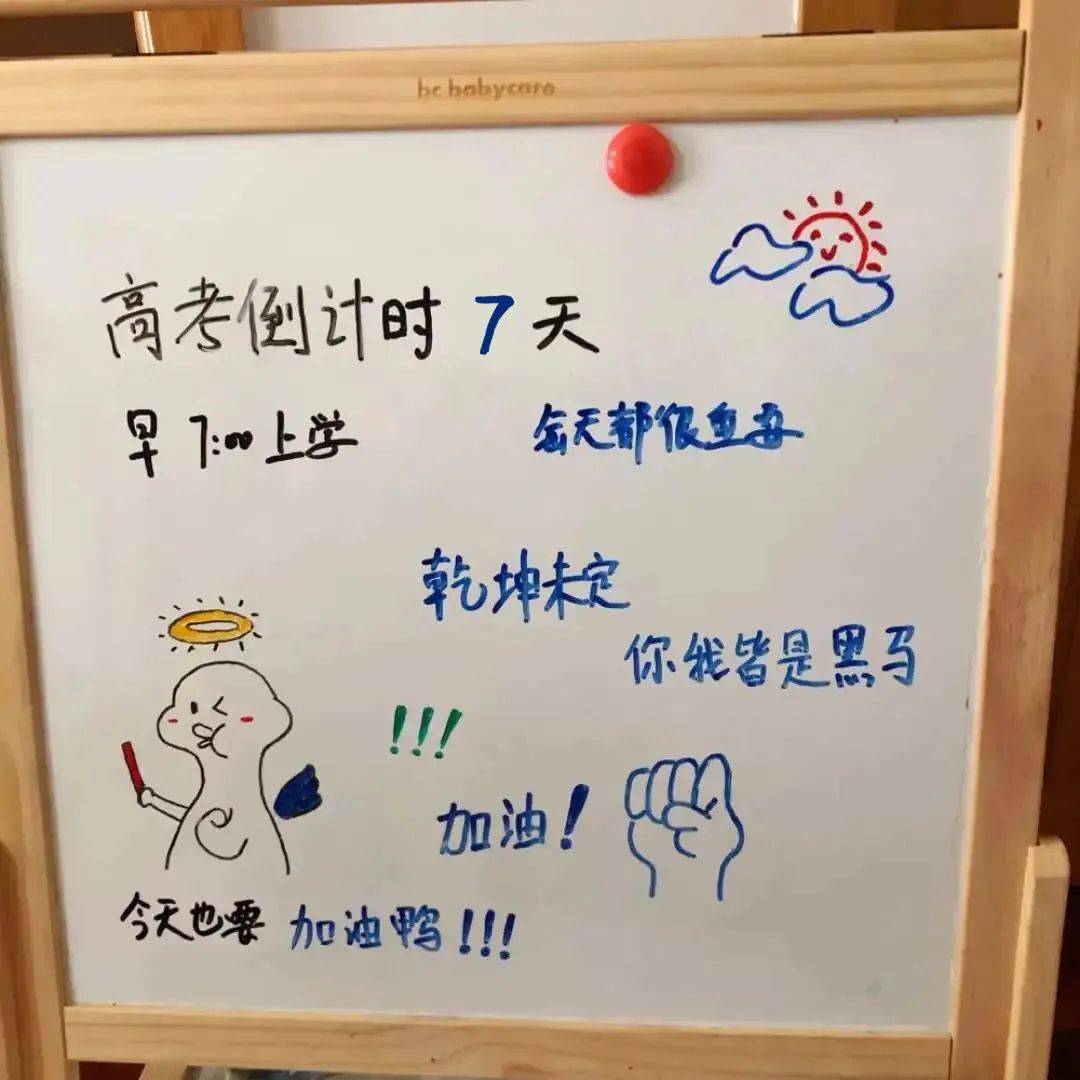 bc babycare
高考倒计时 7 天
早 7:00 上学
每天都很重要
乾坤未定
你我皆是黑马
!!!
加油!
今天也要 加油鸭!!!